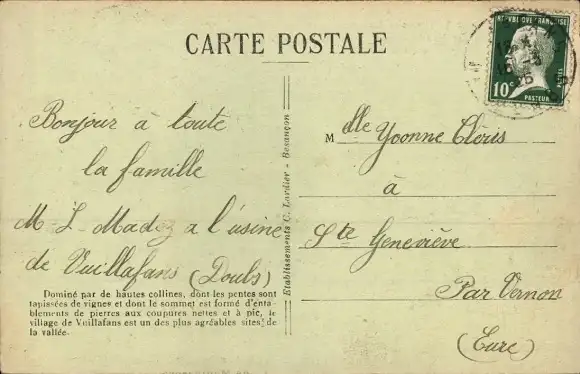 CARTE POSTALE
RÉPUBLIQUE FRANÇAISE
10c
PASTEUR
Bonjour à toute
la famille
M L Madoz a l'usine
de Vuillafans (Doubs)
Dominé par de hautes collines, dont les pentes sont
tapissées de vignes et dont le sommet est formé d'enta-
blements de pierres aux coupures nettes et à pic, le
village de Vuillafans est un des plus agréables sites de
la vallée.
Etablissements C. Lardier - Besançon
Mdlle Yvonne Cléris
à
Ste Geneviève
Par Vernon
(Eure)